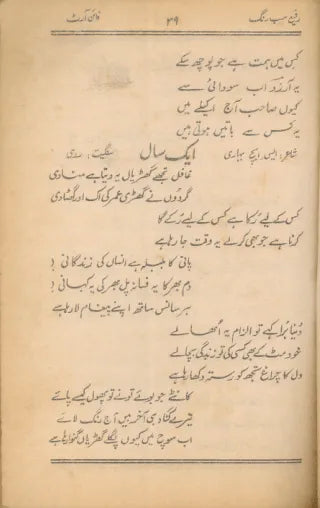 رفیع سب رنگ ۳۹ فائن آرٹ
کس میں ہمت ہے جو پوچھ سکے
یہ آرزو اب سودائی سے
کیوں صاحب آج اکیلے میں
یہ کس سے باتیں ہوتی ہیں
شاعر: ایس ایچ بہاری ایک سال سنگیت: روی
غافل تجھے گھڑیال یہ دیتا ہے منادی
گردوں نے گھڑی عمر کی اک اور گھٹا دی
کس کے لیے رکا ہے کس کے لیے رکے گا
کرنا ہے جو بھی کر لے یہ وقت جا رہا ہے
پانی کا بلبلہ ہے انساں کی زندگانی !
دم بھر کا یہ فسانہ پل بھر کی یہ کہانی !
ہر سانس ساتھ اپنے پیغام لا رہا ہے
دنیا برا کہے تو الزام یہ اٹھا لے
خود مٹ کے بھی کسی کی تو زندگی بچا لے
دل کا چراغ تجھ کو رستہ دکھا رہا ہے
کانٹے جو بوئے تو نے تو پھول کیسے پائے
تیرے گناہ ہی آخر ہیں آج رنگ لائے
اب سوچ میں کیوں پگلے گھڑیاں گنوا رہا ہے